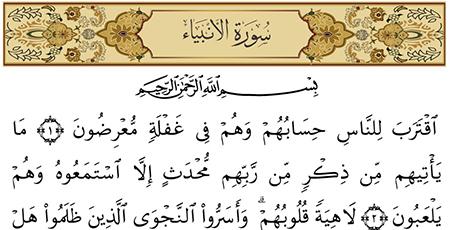 سُورَةُ الْأَنْبِيَاءِ
بِسْمِ اللَّهِ الرَّحْمَٰنِ الرَّحِيمِ
ٱقْتَرَبَ لِلنَّاسِ حِسَابُهُمْ وَهُمْ فِى غَفْلَةٍ مُّعْرِضُونَ ﴿١﴾ مَا
يَأْتِيهِم مِّن ذِكْرٍ مِّن رَّبِّهِم مُّحْدَثٍ إِلَّا ٱسْتَمَعُوهُ وَهُمْ
يَلْعَبُونَ ﴿٢﴾ لَاهِيَةً قُلُوبُهُمْ ۗ وَأَسَرُّوا۟ ٱلنَّجْوَى ٱلَّذِينَ ظَلَمُوا۟ هَلْ